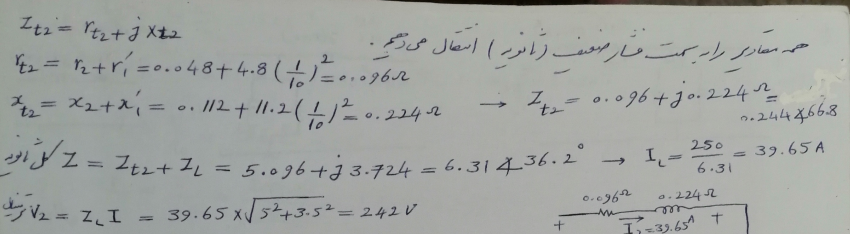 Z_t2 = r_t2 + j x_t2
همه مقادیر را به سمت فشار ضعیف (ثانویه) انتقال می‌دهیم.
r_t2 = r_2 + r'_1 = 0.048 + 4.8 (1/10)^2 = 0.096 Ω
x_t2 = x_2 + x'_1 = 0.112 + 11.2 (1/10)^2 = 0.224 Ω → Z_t2 = 0.096 + j 0.224 Ω =
0.244 ∠66.8
کل ثانویه Z = Z_t2 + Z_L = 5.096 + j 3.724 = 6.31 ∠36.2° → I_L = 250/6.31 = 39.65 A
V_2 = Z_L I = 39.65 × √(5^2 + 3.5^2) = 242 V
0.096Ω 0.224Ω
+ I_2 = 39.65 A +